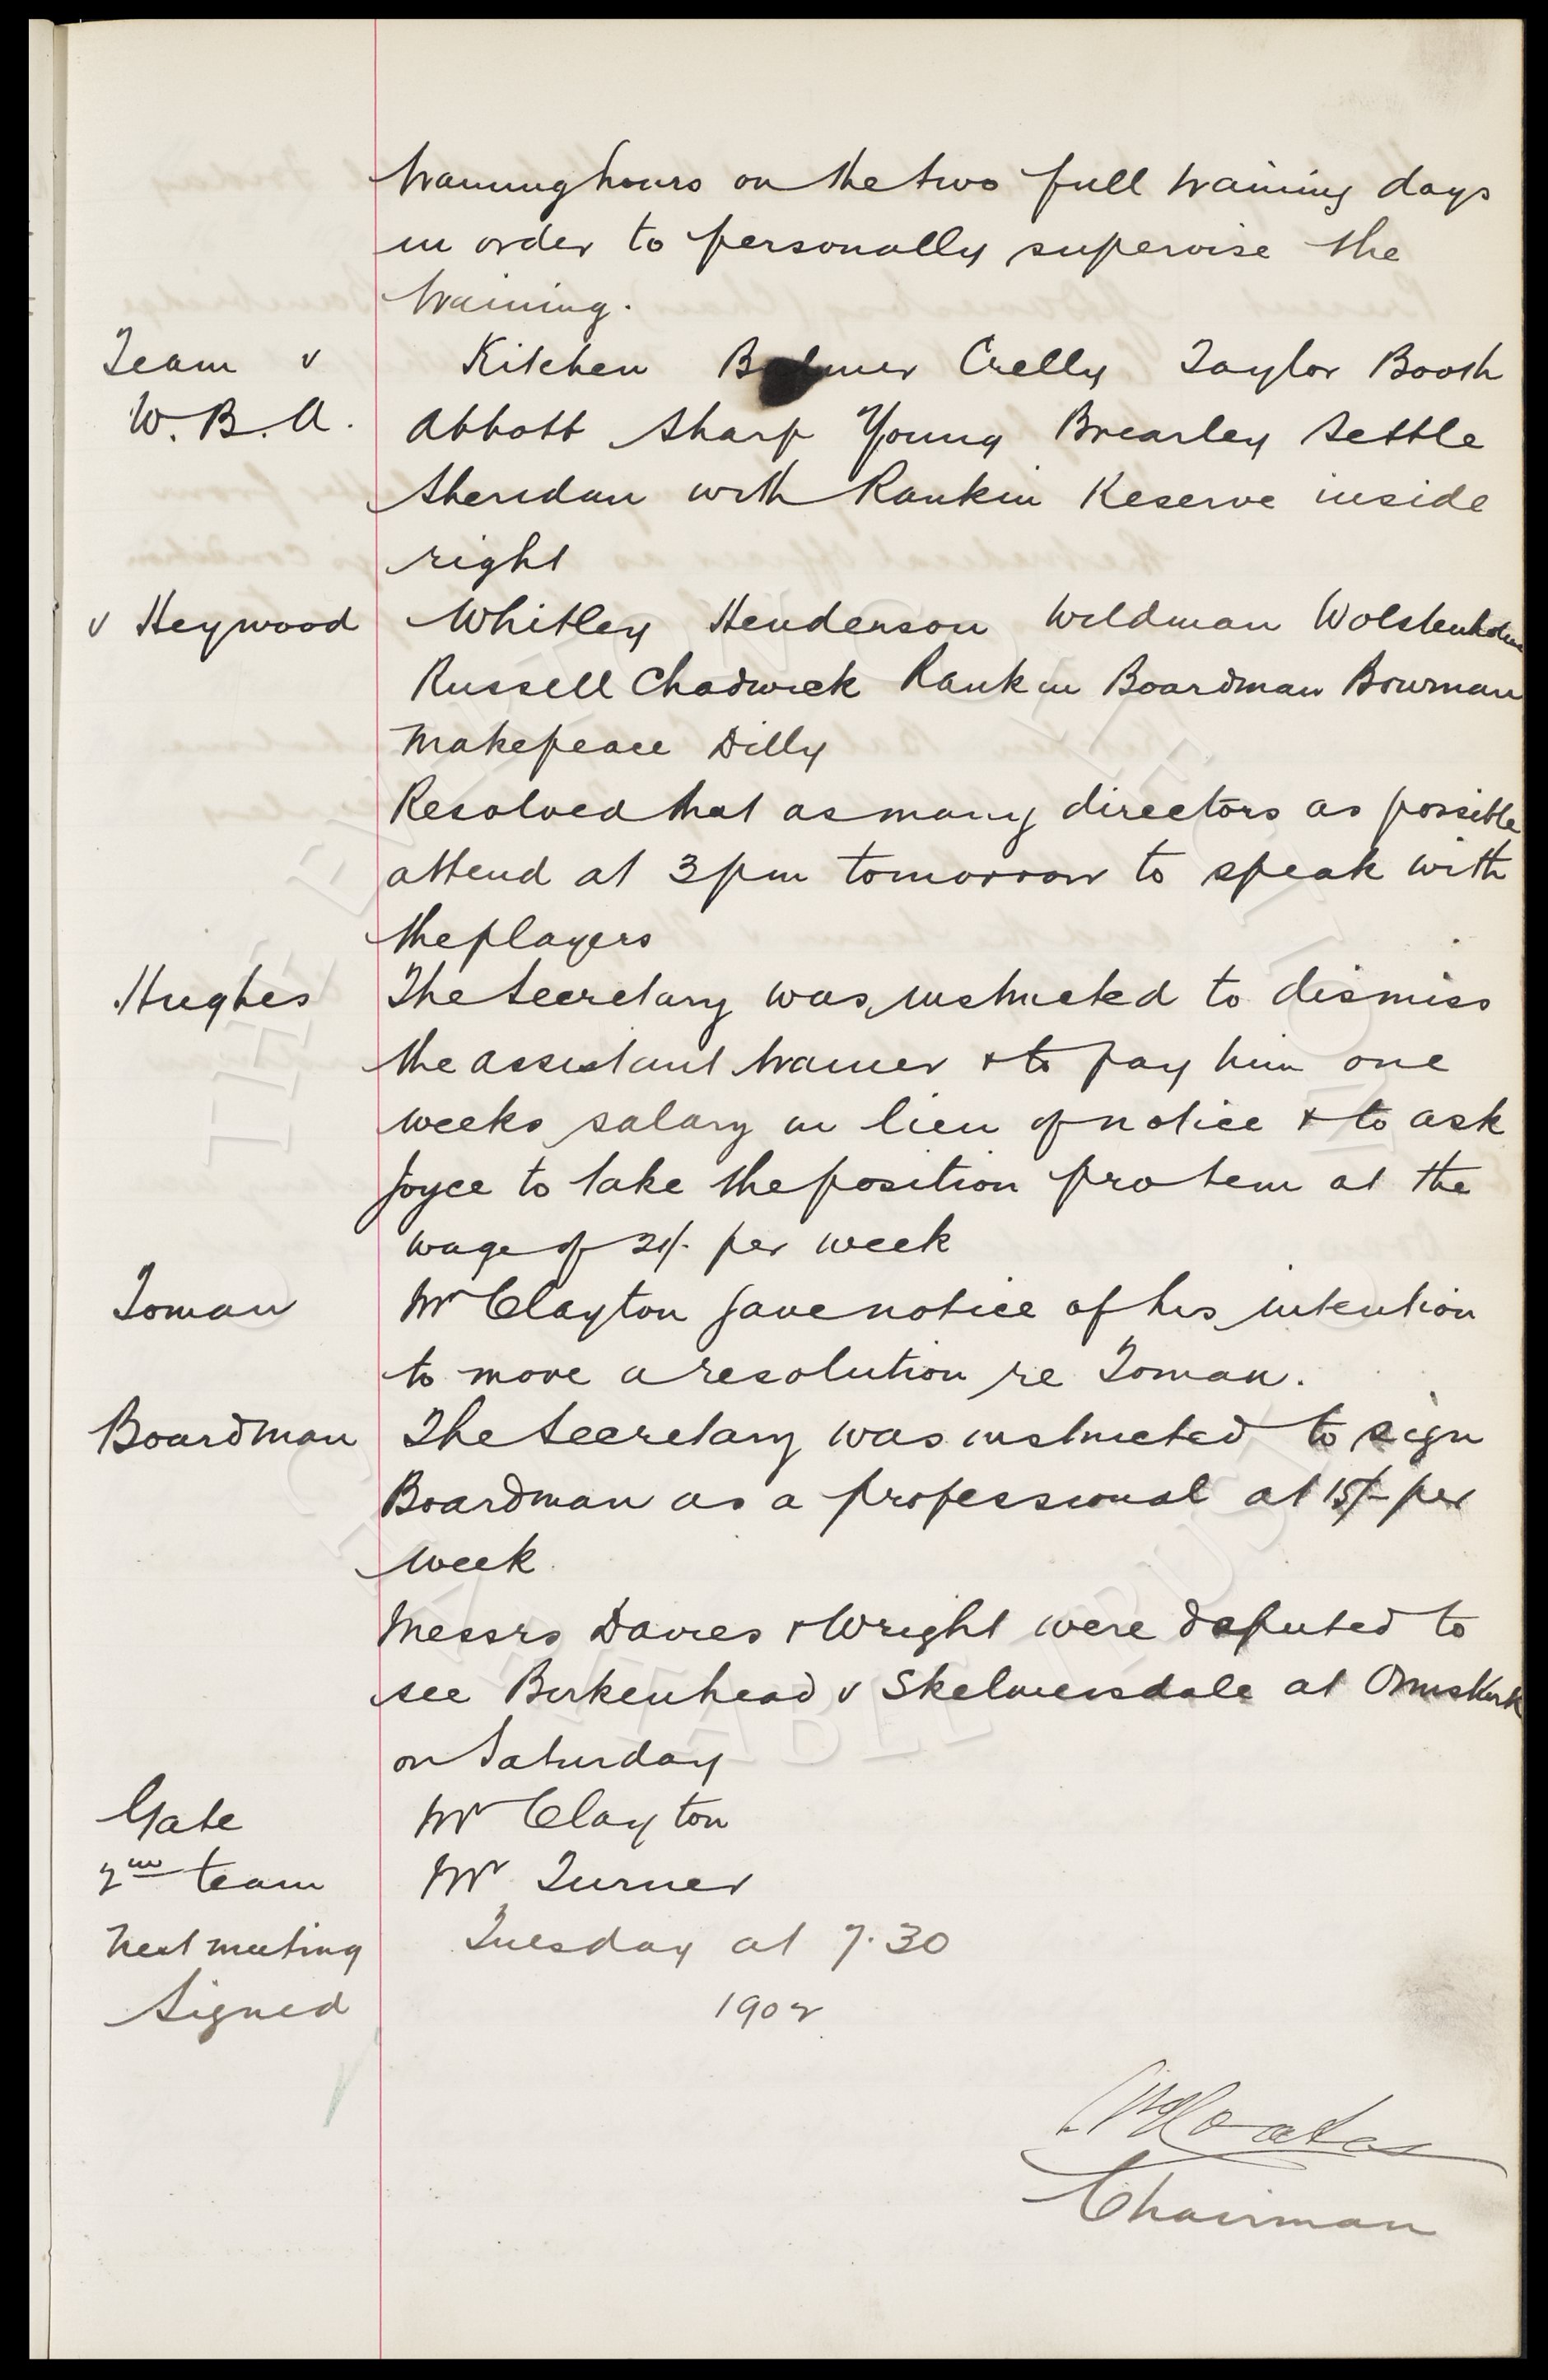 training hours on the two full training days
in order to personally supervise the
training.
Team v Kitchen Balmer Crelly Taylor Booth
W.B.A. Abbott Sharp Young Brearley Settle
Sheridan with Rankin Reserve inside
right
v Heywood Whitley Henderson Wildman Wolstenholme
Russell Chadwick Rankin Boardman Bowman
Makepeace Dilly
Resolved that as many directors as possible
attend at 3pm tomorrow to speak with
the players
Hughes The Secretary was instructed to dismiss
the assistant trainer & to pay him one
weeks salary in lieu of notice & to ask
Joyce to take the position pro tem at the
wage of per week
Toman Mr Clayton gave notice of his intention
to move a resolution re Toman.
Boardman The Secretary was instructed to sign
Boardman as a professional at 15/- per
week.
Messrs Davies & Wright were deputed to
see Birkenhead v Skelmersdale at Ormskirk
on Saturday
Gate Mr Clayton
2nd team Mr Turner
Next meeting Tuesday at 7.30
Signed 1902
Coates
Chairman
THE EVERTON COLLECTION
CHARITABLE TRUST